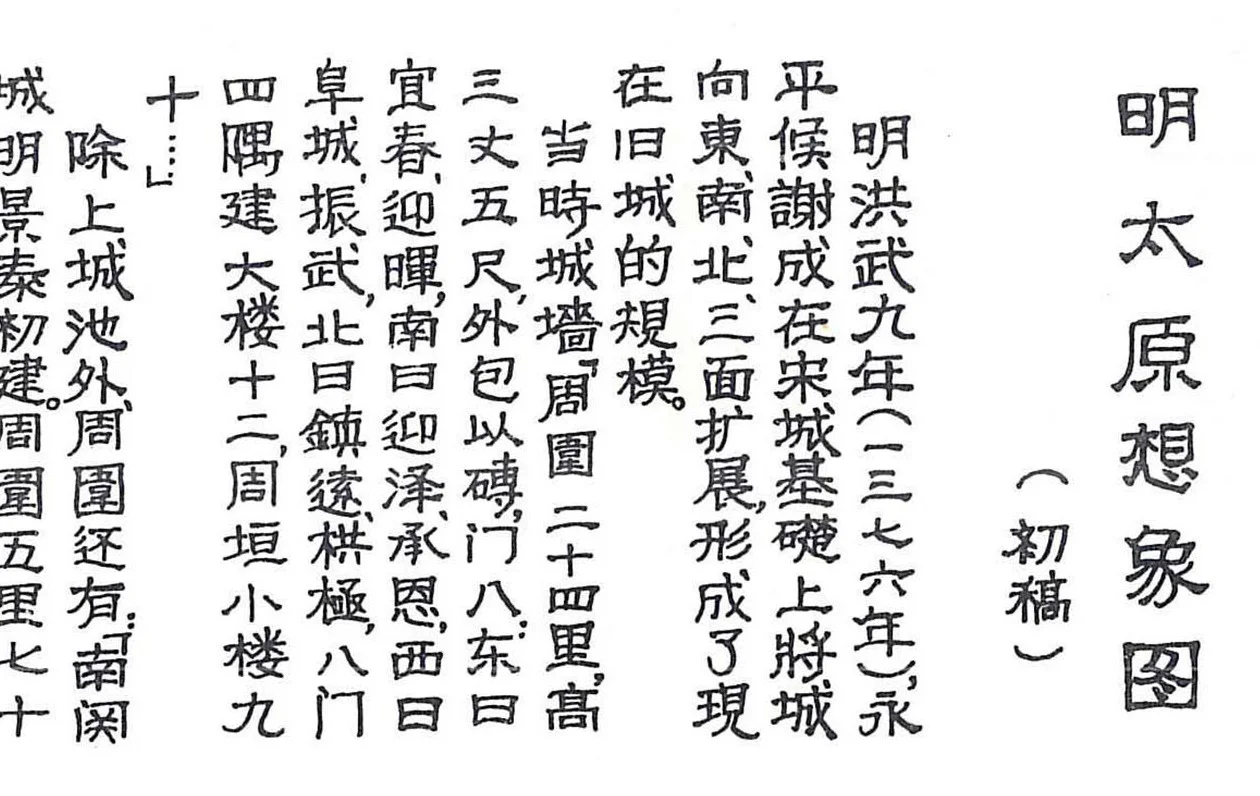 明太原想象图
（初稿）
明洪武九年（一三七六年），永
平候謝成在宋城基礎上將城
向東、南、北、三面扩展，形成了現
在旧城的規模。
当時城墻「周圍二十四里，高
三丈五尺，外包以磚，门八：东曰
宜春、迎暉，南曰迎泽、承恩，西曰
阜城、振武，北曰鎮遠、栱極，八门
四隅建大楼十二，周垣小楼九
十……」
除上城池外、周圍还有：「南関
城明景泰初建。周圍五里七十